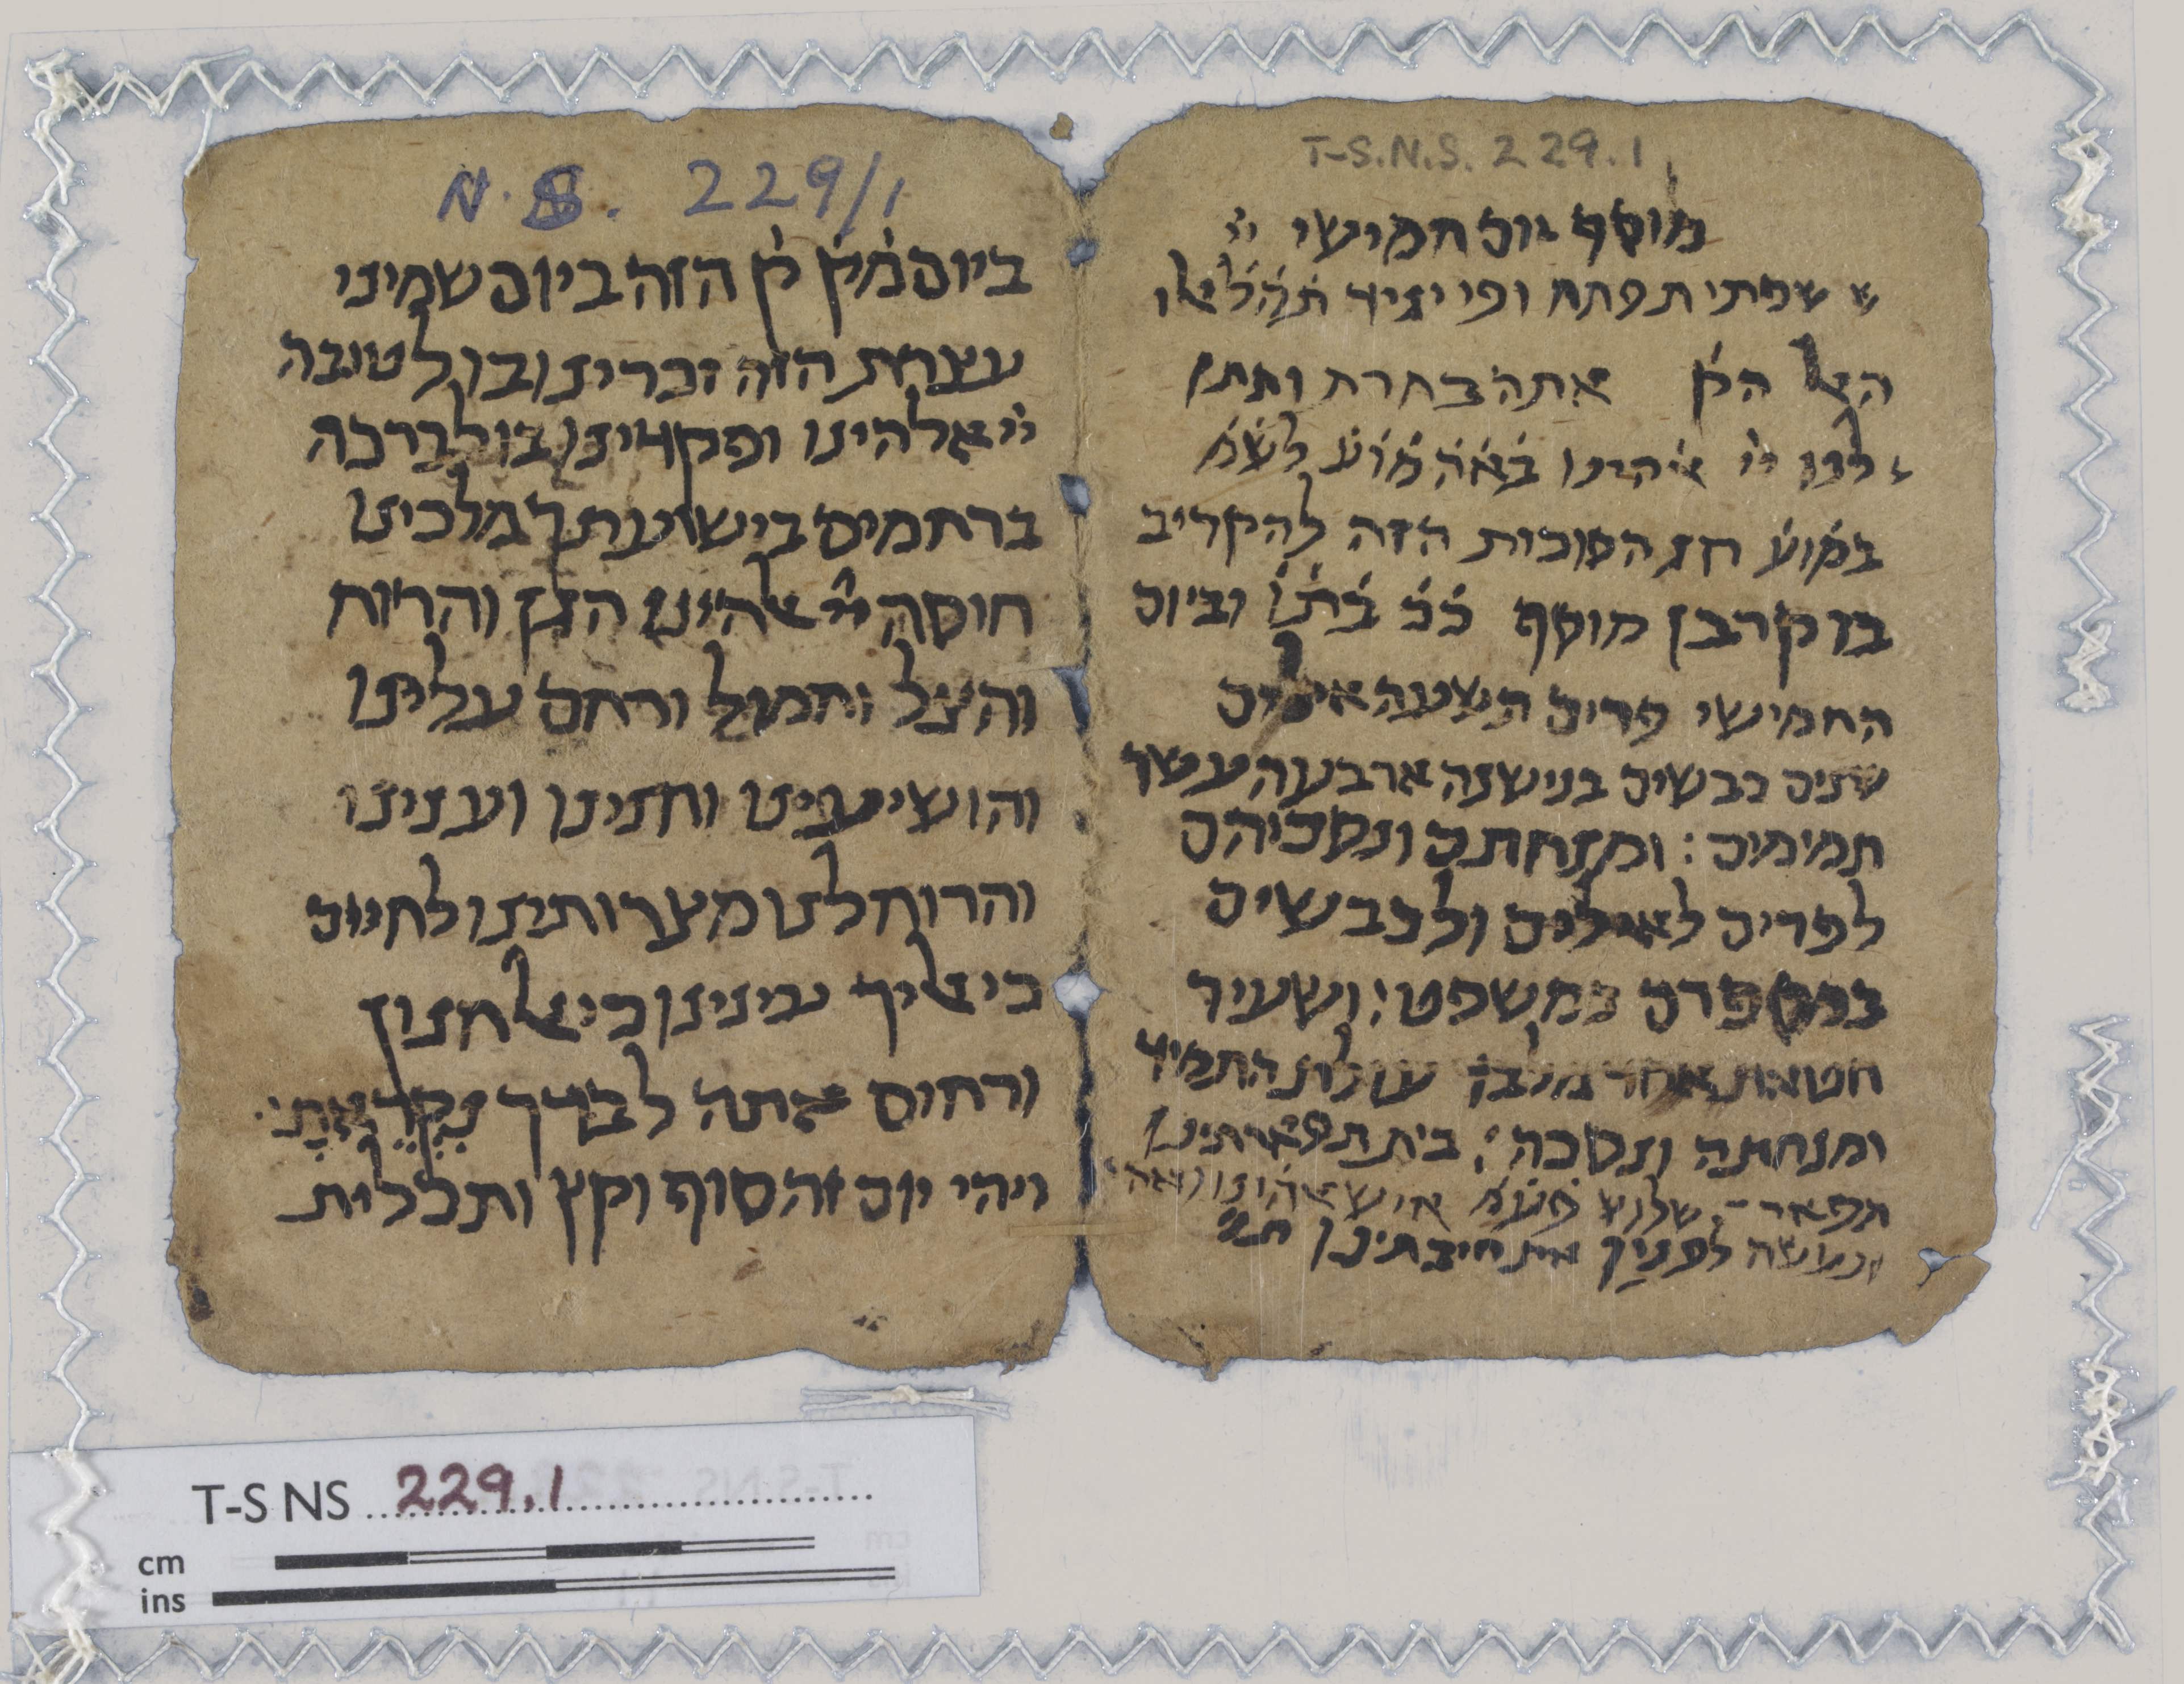 T-S.N.S. 229.1
מוסף יום חמישי יי
שפתי תפתח ופי יגיד תהל
האל הק אתה בחרת ותתן
לנו יי אהינו באה מוע לשמ
במוע חג הסוכות הזה להקריב
בו קרבן מוסף ככ בתו וביום
החמישי פרים תשעה אילים
שנים כבשים בני שנה ארבעה עשר
תמימים : ומנחתם ונסכיהם
לפרים לאילים ולכבשים
במספרם כמשפט : ושעיר
חטאת אחד מלבד עולת התמיד
ומנחתה ונסכה : בית תפארתינו
תפאר שלוש פעמ איש אהינו
ונעשה לפניך את חובתינו
N.S. 229/1
ביום מק ק הזה ביום שמיני
עצרת הזה זכרינו בו לטובה
יי אלהינו ופקדינו בו לברכה
ברחמים בישועתך מלכינו
חוסה יי אלהינו הגן והרוח
והצל וחמול ורחם עלינו
והושיעינו וחנינו וענינו
והרוח לנו מצרותינו לחיים
כי אליך עינינו כי אל חנון
ורחום אתה לבדך נקראת
ויהי יום זה סוף וקץ ותכלית
T-S NS 229.1
cm
ins